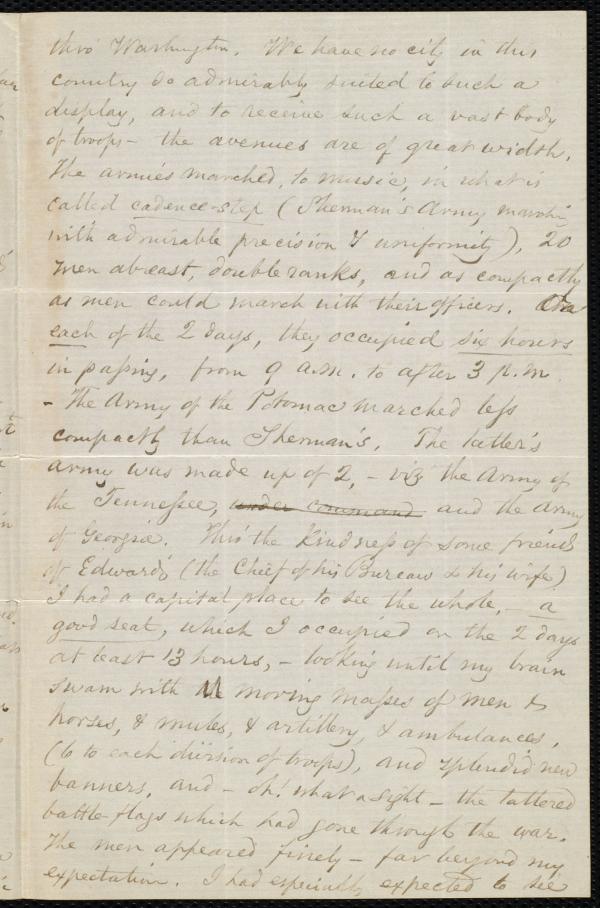 thro' Washington. We have no city in this
country so admirably suited to such a
display, and to receive such a vast body
of troops - the avenues are of great width.
The armies marched, to music, in what is
called cadence-step (Sherman's Army marching
with admirable precision & uniformity), 20
men abreast, double ranks, and as compactly
as men could march with their officers. On
each of the 2 days, they occupied six hours
in passing, from 9 a.m. to after 3 p.m.
- The Army of the Potomac marched less
compactly than Sherman's. The latter's
army was made up of 2, - viz the Army of
the Tennessee, under command and the Army
of Georgia. Thro' the kindness of some friends
of Edward's (the Chief of his Bureau & his wife)
I had a capital place to see the whole, - a
good seat, which I occupied on the 2 days
at least 13 hours, - looking until my brain
swam with moving masses of men &
horses, & mules, & artillery, & ambulances,
(6 to each division of troops), and splendid new
banners, and - oh! what a sight - the tattered
battle-flags which had gone through the war.
The men appeared finely - far beyond my
expectation. I had especially expected to see